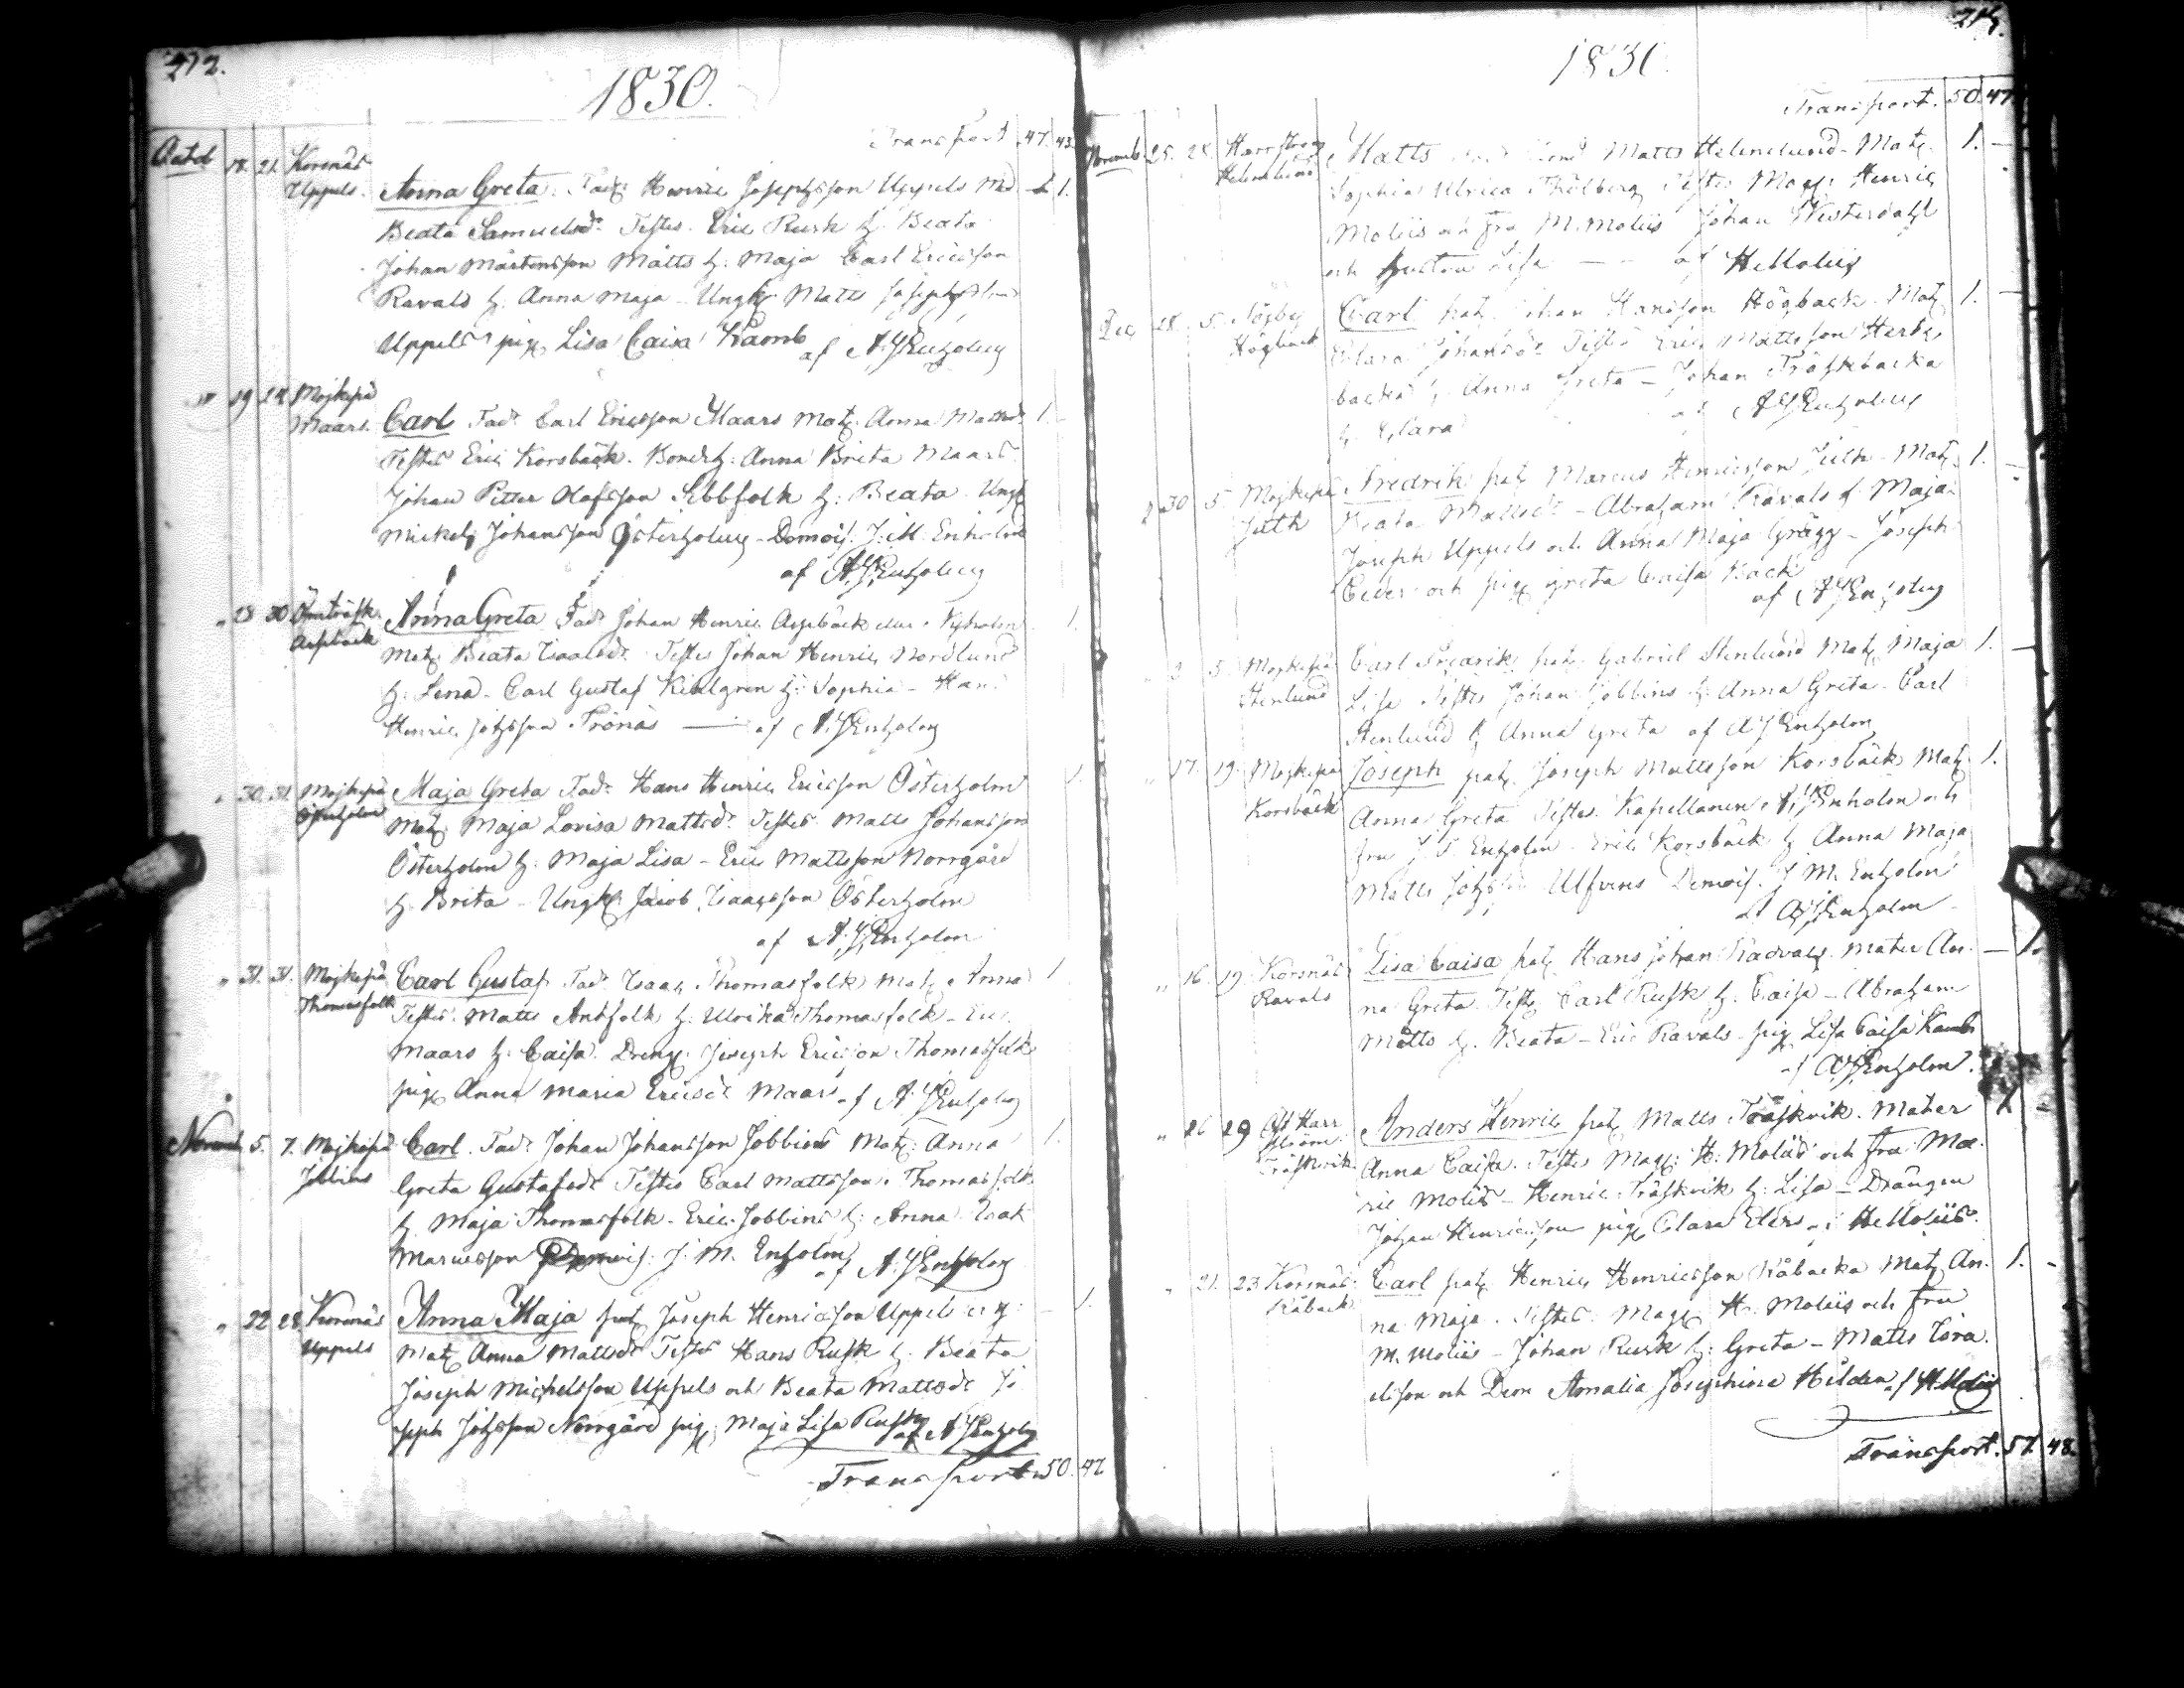 272.
1830.
Transport 47. 43.
Octob 18. 21. Korsnäs
Uppels. Anna Greta. Fad: Henric Josephsson Uppels Mod 1.
Beata Samuelsdr Testes. Eric Rusk h. Beata
Johan Mårtensson Matts h: Maja Carl Ericsson
Ravals h. Anna Maja - Ungk Matts Josephsson
Uppels pig. Lisa Caisa Kamb af A.J. Enholm
19 24 Mojkepä
Maars. Carl Fad: Carl Ericsson Maars Mat: Anna Mattsd: 1.
Testes Eric Korsbäck. Bond h: Anna Brita Maars
Johan Petter Olofsson Sebbfolk h: Beata Ungk
Mickel Johansson Österholm - Demois. J: M. Enholm
af A.J. Enholm
28 30 Öfverträsk Anna Greta Fad: Johan Henric Aspbäck eller Nyholm 1.
Aspback Mat: Beata Isaksdr Testes Johan Henric Nordlund
h: Lena - Carl Gustaf Kihlgren h: Sophia - Han:
Henric Johsson Frönäs af A.J. Enholm
30. 31. Mojkepä Maja Greta Fad: Hans Henric Ericsson Österholm 1.
Österholm Mat: Maja Lovisa Mattsdr. Testes. Matts Johansson
Österholm h: Maja Lisa - Eric Mattsson Norrgård
h. Brita - Ungk. Jacob Isaacsson Österholm
af A.J. Enholm
31. 31. Mojkepä Carl Gustaf Fad: Isaac Thomasfolk Mat: Anna 1
Thomasfolk Testes. Matts Antfolk h: Ulrika Thomasfolk - Eric
Maars h: Caisa. Dreng: Joseph Ericsson Thomasfolk
pig. Anna Maria Ericsdr Maars af A.J. Enholm
Novemb 5. 7. Mojkepä Carl. Fad: Johan Johansson Jobbins Mat: Anna 1.
Jobbins Greta Gustafsdr Testes Carl Mattsson Thomasfolk
h. Maja Thomasfolk - Eric Jobbins h: Anna Isak
Marcusson Demois. J: M. Enholm af A.J. Enholm
22 28. Korsnäs Anna Maja pat. Joseph Henricsson Uppels 1.
Uppels Mat: Anna Mattsdr Testes Hans Rusk h. Beata
Joseph Michelsson Uppels och Beata Mattsdr Jo
seph Johsson Norrgård pig. Maja Lisa Rusk af A.J. Enholm
Transport 50. 47
1830.
Transport. 50. 47
Novemb. 25. 28 Harrström Matts Matts Helenelund - Mat: 1. -
Helenelund Sophia Ulrica Thölberg Testes Mag: Henric
Moliis och Fru M. Moliis Johan Westerdahl
och hustru Lisa af H Moliis
Dec 28. 5. Töjby Carl pat. Johan Hansson Högback - Mat: 1. -
Högback Clara Johansdr Testes Eric Mattsson Herts
backa h. Anna Greta - Johan Träskbacka
h. Clara af A.J. Enholm
30 5. Mojkepä Fredrik pat. Marcus Henricsson Juth - Mat: 1. -
Juth Beata Mattsdr - Abraham Ravals h Maja
Joseph Uppels och Anna Maja Grägg - Joseph
och pig. Greta Caisa Back
af A.J. Enholm
3 5. Mojkepä Carl Fredrik pat. Gabriel Stenlund Mat: Maja 1. -
Stenlund Lisa Testes Johan Jobbins h. Anna Greta - Carl
Stenlund h. Anna Greta af A J Enholm
17. 19. Mojkepä Joseph pat. Joseph Mattsson Korsbäck Mat: 1.
Korsbäck Anna Greta Testes. Kapellanen A. J. Enholm och
fru J. S. Enholm - Eric Korsbäck h. Anna Maja
Matts Johsson Ulfvens Demois. J. M. Enholm
af A.J. Enholm
16 19. Korsnäs Lisa Caisa pat. Hans Johan Radvals Mater An- - 1.
Ravals na Greta. Test. Carl Rusk h. Caisa - Abraham
Matts h. Beata - Eric Ravals - pig. Lisa Caisa Kamb
af A.J. Enholm.
16 19 Harr Anders Henric pat. Matts Träskvik. Mater 1 -
ström
Träskvik Anna Caisa. Testes Mag: H. Moliis och Fru Ma-
rie Moliis - Henric Träskvik h: Lisa - Drängen
Johan Henricsson pig. Clara Elers af H Moliis.
21. 23 Korsnäs Carl pat. Henric Henricsson Råbacka Mat: An- 1. -
Råback na Maja. Testes. Mag: H. Moliis och Fru
M. Moliis - Johan Rusk h: Greta - Matts Isra-
elsson och Dem Amalia Josephina Hilden af H Moliis
Transport. 57. 48.